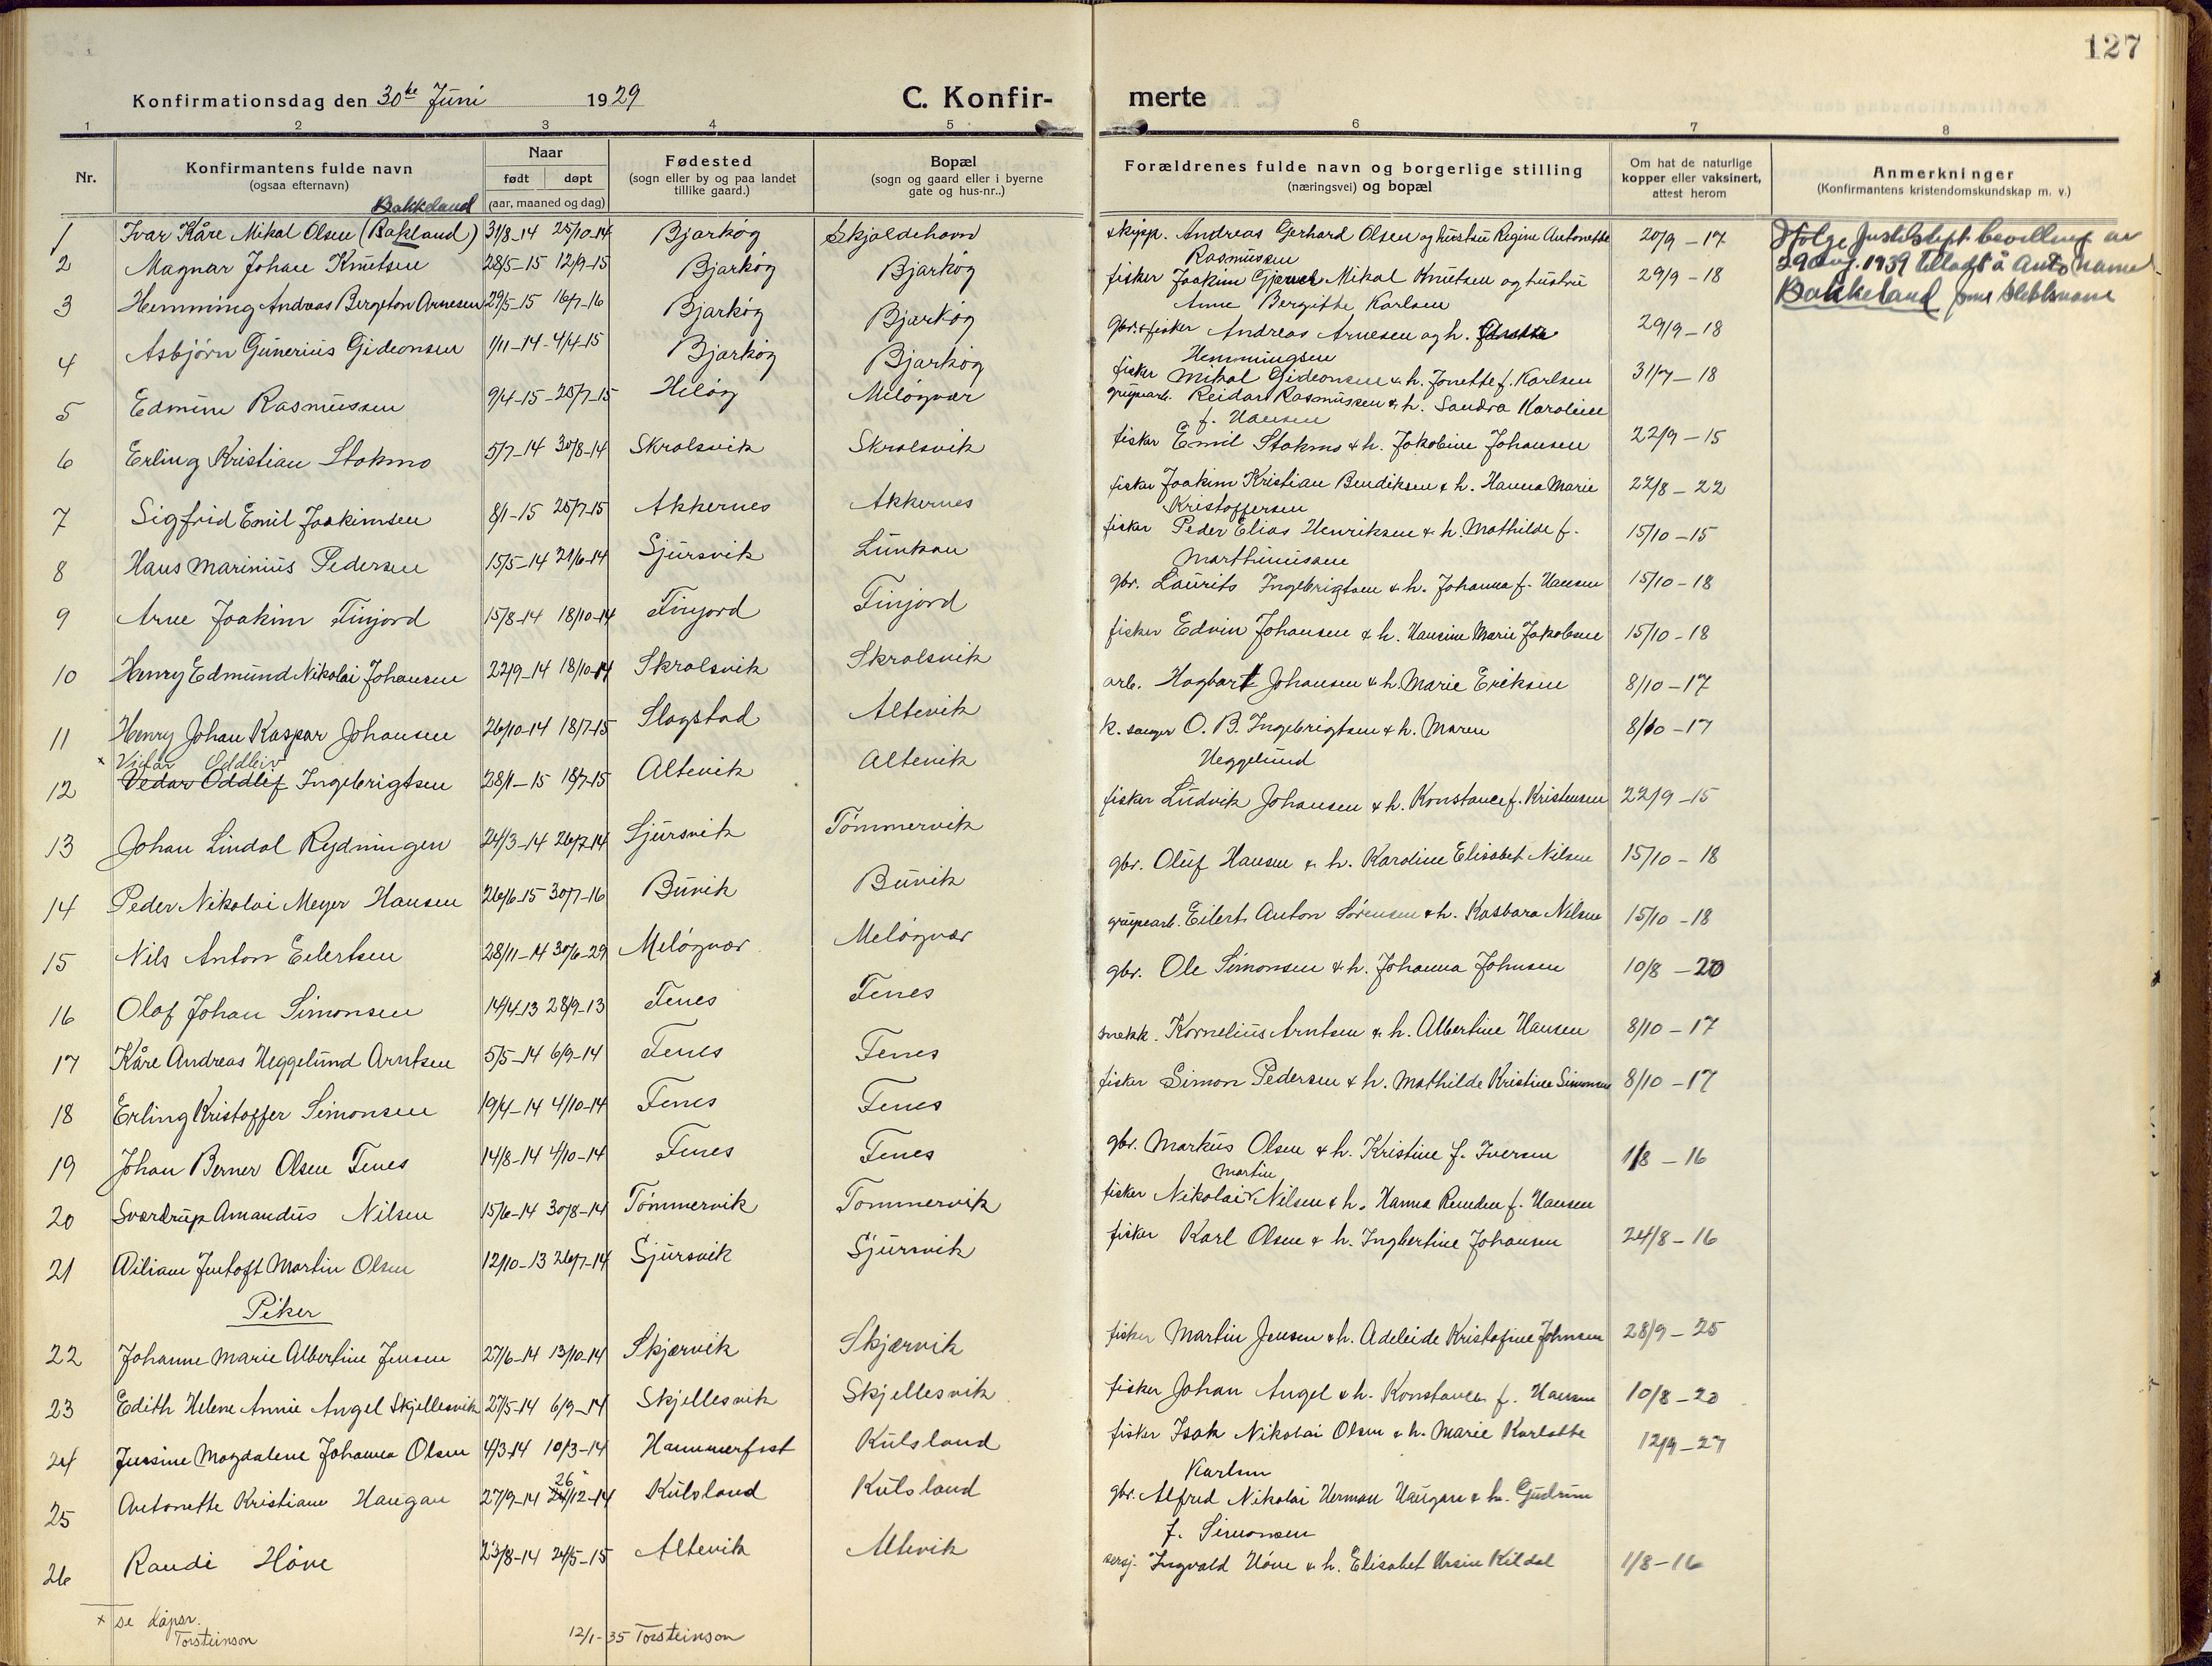 127
Konfirmationsdag den 30te Juni 1929
C. Konfir-
merte
1 2 3 4 5
6 7 8
Nr.
Konfirmantens fulde navn
(ogsaa efternavn)
Naar
født døpt
(aar, maaned og dag)
Fødested
(sogn eller by og paa landet
tillike gaard.)
Bopæl
(sogn og gaard eller i byerne
gate og hus-nr..)
Forældrenes fulde navn og borgerlige stilling
(næringsvei) og bopæl
Om hat de naturlige
kopper eller vaksinert,
attest herom
Anmerkninger
(Konfirmantens kristendomskundskap m. v.)
Bakkeland
1 Ivar Kåre Mikal Olsen (Bakland) 31/8-14 25/10-14 Bjarkøy Skjoldehavn
2 Magnar Johan Knutsen 28/5-15 12/9-15 Bjarkøy Bjarkøy
3 Hemming Andreas Bergton Arnesen 29/5-15 16/7-16 Bjarkøy Bjarkøy
4 Asbjørn Gunerius Gideonsen 1/11-14 4/4-15 Bjarkøy Bjarkøy
5 Edmun Rasmussen 9/4-15 25/7-15 Meløy Meløyvær
6 Erling Kristian Stokmo 5/7-14 30/8-14 Skrolsvik Skrolsvik
7 Sigfrid Emil Joakimsen 8/1-15 25/7-15 Akkernes Akkernes
8 Hans Marinius Pedersen 15/5-14 21/6-14 Sjursvik Lunkan
9 Arne Joakim Finjord 15/8-14 18/10-14 Finjord Finjord
10 Henry Edmund Nikolai Johansen 22/9-14 18/10-14 Skrolsvik Skrolsvik
11 Henry Johan Kaspar Johansen 26/10-14 18/7-15 Slagstad Altevik
x Vidar Oddleiv
12 Vedar Oddlif Ingebrigtsen 28/1-15 18/7-15 Altevik Altevik
13 Johan Lindal Rydningen 24/3-14 26/7-14 Sjursvik Tømmervik
14 Peder Nikolai Meyer Hansen 26/6-15 30/7-16 Buvik Buvik
15 Nils Anton Eilertsen 28/11-14 30/6-29 Meløyvær Meløyvær
16 Olaf Johan Simonsen 14/4-13 28/9-13 Fenes Fenes
17 Kåre Andreas Heggelund Arntsen 5/5-14 6/9-14 Fenes Fenes
18 Erling Kristoffer Simonsen 19/4-14 4/10-14 Fenes Fenes
19 Johan Berner Olsen Fenes 14/8-14 4/10-14 Fenes Fenes
20 Sverdrup Amandus Nilsen 15/6-14 30/8-14 Tømmervik Tømmervik
21 Wiliam Jentoft Martin Olsen 12/10-13 26/7-14 Sjursvik Sjursvik
Piker
22 Johanne Marie Albertine Jensen 27/6-14 13/10-14 Skjærvik Skjærvik
23 Edith Helene Annie Angel Skjellesvik 27/5-14 6/9-14 Skjellesvik Skjellesvik
24 Jussine Magdalene Johanna Olsen 4/3-14 10/3-14 Hammerfest Kulsland
26
25 Antonette Kristiane Haugan 27/9-14 /12-14 Kulsland Kulsland
26 Randi Høve 23/8-14 24/5-15 Altevik Altevik
x se dåpsr.
Torsteinson
12/1-35 Torsteinson
skipp. Andreas Gerhard Olsen og hustru Regine Antonette 20/9-17
Rasmussen
fisker Joakim Mikal Knutsen og hustru 29/9-18
Anne Bergitte Karlsen
gbr. & fisker Andreas Arnesen og h. 29/9-18
Hemmingsen
fisker Mikal Gideonsen & h. Jonette f. Karlsen 31/7-18
grupearb. Reidar Rasmussen & h. Sandra Karoline
f. Hansen
fisker Emil Stokmo & h. Jakobine Johansen 22/9-15
fisker Joakim Kristian Bendiksen & h. Hanna Marie 22/8-22
Kristoffersen
fisker Peder Elias Henriksen & h. Mathilde f. 15/10-15
Marthinusson
gbr. Laurits Ingebrigtsen & h. Johanna f. Hansen 15/10-18
fisker Edvin Johansen & h. Hansine Marie Jakobsen 15/10-18
arb. Hagbart Johansen & h. Marie Eriksen 8/10-17
k. sanger O. B. Ingebrigtsen & h. Maren 8/10-17
Heggelund
fisker Ludvik Johansen & h. Konstance f. Kristensen 22/9-15
gbr. Oluf Hansen & h. Karoline Elisabet Nilsen 15/10-18
grupearb. Eilert Anton Sørensen & h. Kasbara Nilsen 15/10-18
gbr. Ole Simonsen & h. Johanna Johnsen 10/8-20
snekk. Kornelius Arntsen & h. Albertine Hansen 8/10-17
fisker Simon Pedersen & h. Mathilde Kristine Simonsen 8/10-17
gbr. Markus Olsen & h. Kristine f. Iversen 1/8-16
Martin
fisker Nikolai Nilsen & h. Hanna f. Hansen
fisker Karl Olsen & h. Ingbertine Johansen 24/8-16
fisker Martin Jensen & h. Adeleide Kristofine Johnsen 28/9-25
fisker Johan Angel & h. Konstance f. Hansen 10/8-20
fisker Isak Nikolai Olsen & h. Marie Karlotte 12/9-27
Karlsen
gbr. Alfred Nikolai Herman Haugan & h. Gudrun
f. Simonsen
sersj. Ingvald Høve & h. Elisabet Ursin Kildal 1/8-16
Ifølge Justisdept. bevilling av
29 aug. 1939 tilladt å anta navnet
Bakkeland som slektsnavn